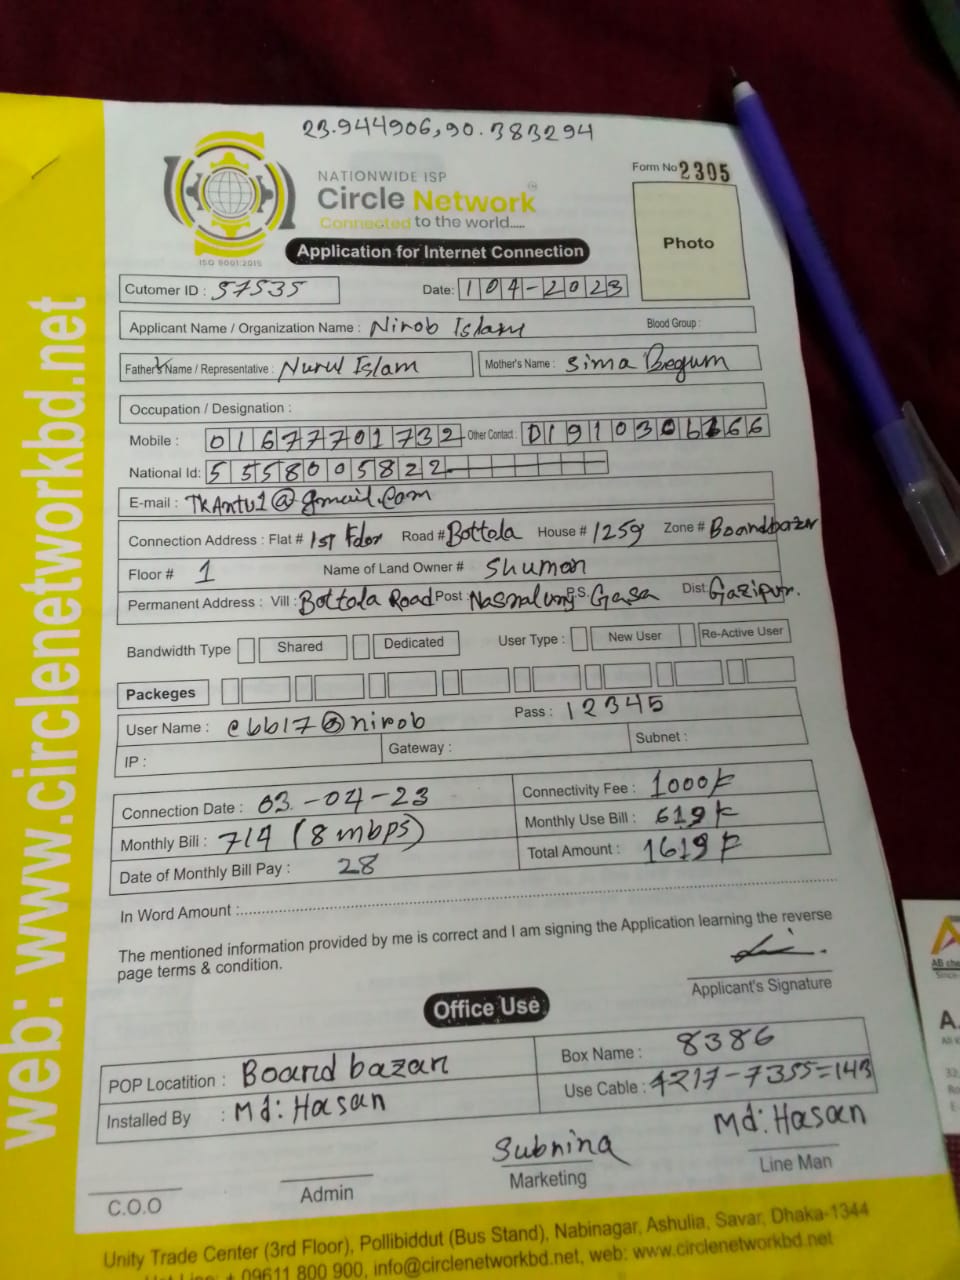 23.944906,90.383294
NATIONWIDE ISP
Circle Network
Connected to the world.....
ISO 9001:2015
Form No 2305
Photo
Application for Internet Connection
Cutomer ID : 57535 Date: 104-2023
Applicant Name / Organization Name : Nirob Islam Blood Group :
Father's Name / Representative : Nurul Islam Mother's Name : Sima Begum
Occupation / Designation :
Mobile : 01677701732 Other Contact :
National Id: 5558005822
E-mail : TkAntu1@gmail.com
Connection Address : Flat # 1st Road # Bottola House # 1259 Zone # Boardbazar
Floor # 1 Name of Land Owner # Shuman
Permanent Address : Vill : Bottola Road Post : P.S. Gasa Dist: Gazipur.
Bandwidth Type Shared Dedicated User Type : New User Re-Active User
Packeges
User Name : @nirob Pass : 12345
IP : Gateway : Subnet :
Connection Date : 03.-04-23 Connectivity Fee : 1000
Monthly Bili : 714 (8 mbps) Monthly Use Bill : 619
Date of Monthly Bill Pay : 28 Total Amount : 1619
In Word Amount :
The mentioned information provided by me is correct and I am signing the Application learning the reverse
page terms & condition.
Applicant's Signature
Office Use
POP Locatition : Board bazar Box Name : 8386
Installed By : Md: Hasan Use Cable : 7217-7355=143
Subnina Md: Hasan
C.O.O Admin Marketing Line Man
Unity Trade Center (3rd Floor), Pollibiddut (Bus Stand), Nabinagar, Ashulia, Savar, Dhaka-1344
09611 800 900, info@circlenetworkbd.net, web: www.circlenetworkbd.net
web: www.circlenetworkbd.net